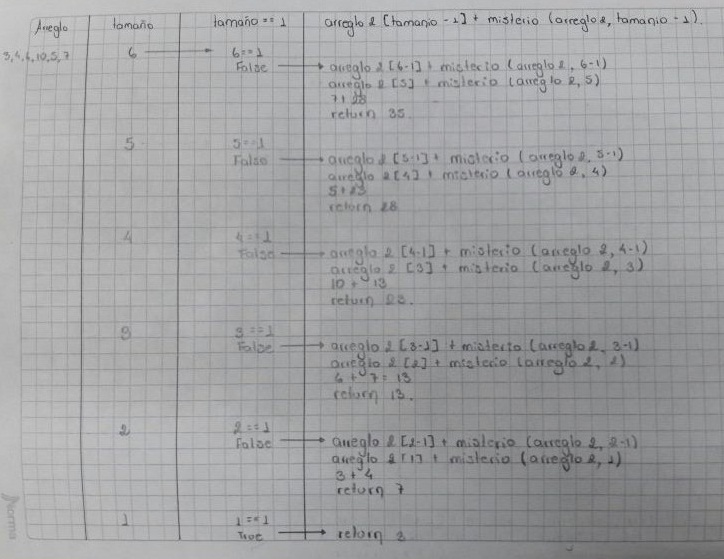 Arreglo tamaño tamaño == 1 arreglo 2 [tamanio - 1] + misterio (arreglo 2, tamanio - 1).
3,4,6,10,5,7 6 6 == 1 arreglo 2 [6-1] + misterio (arreglo 2, 6-1)
False arreglo 2 [5] + misterio (arreglo 2, 5)
7 + 28
return 35.
5 5 == 1 arreglo 2 [5-1] + misterio (arreglo 2, 5-1)
False arreglo 2 [4] + misterio (arreglo 2, 4)
5 + 23
return 28
4 4 == 1 arreglo 2 [4-1] + misterio (arreglo 2, 4-1)
False arreglo 2 [3] + misterio (arreglo 2, 3)
10 + 13
return 23.
3 3 == 1 arreglo 2 [3-1] + misterio (arreglo 2, 3-1)
False arreglo 2 [2] + misterio (arreglo 2, 2)
6 + 7 = 13
return 13.
2 2 == 1 arreglo 2 [2-1] + misterio (arreglo 2, 2-1)
False arreglo 2 [1] + misterio (arreglo 2, 1)
3 + 4
return 7
1 1 == 1
True return 3
norma